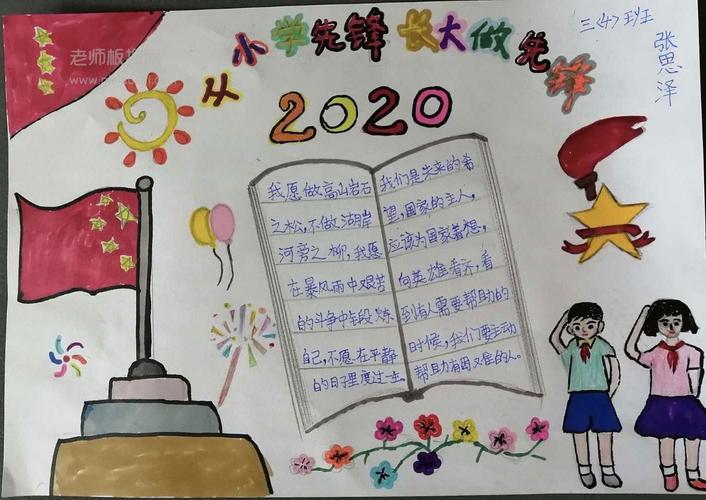 从小学先锋 长大做先锋
三〈4〉班
张思泽
2020
我愿做高山岩石
之松,不做湖岸
河旁之柳,我愿
在暴风雨中艰苦
的斗争中锻炼
自己,不愿在平静
的日子里度过一生。
我们是未来的希
望,国家的主人,
应该为国家着想,
向英雄看齐,看
到有人需要帮助的
时候,我们要主动
帮助有困难的人。
老师板报